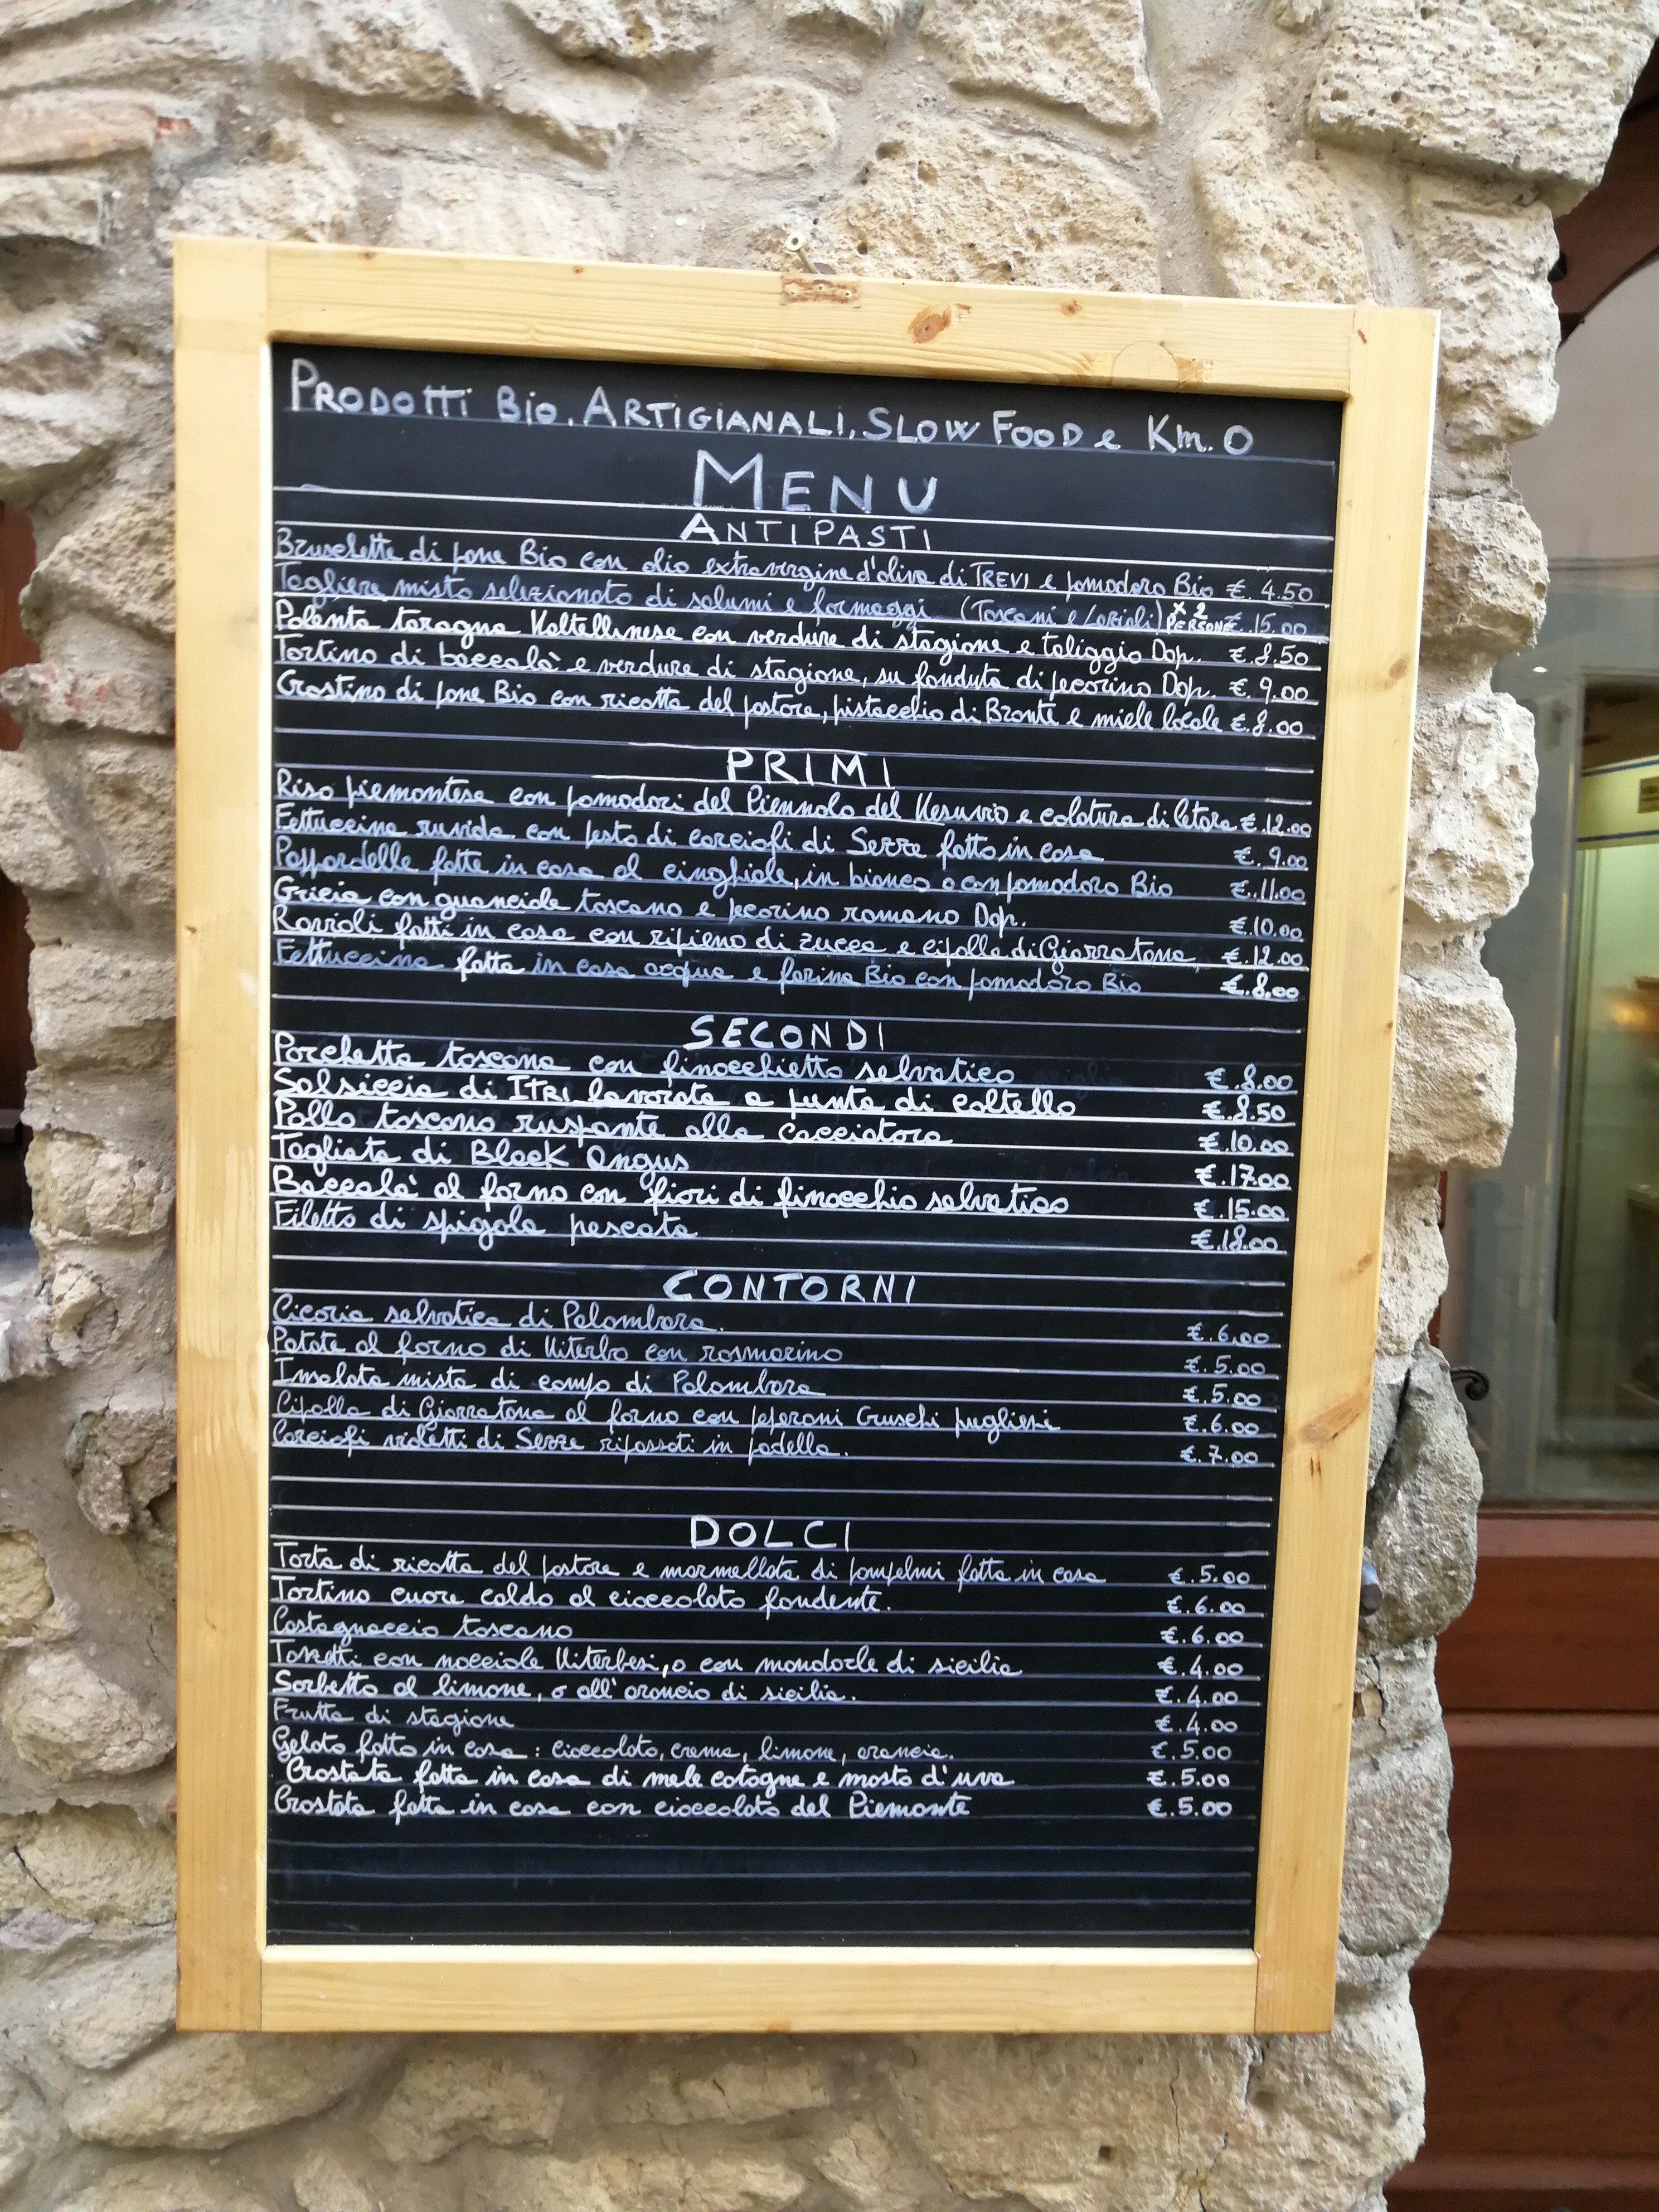 PRODOTTI BiO, ARTIGIANALI, SLOW FOOD e Km. 0
MENU
ANTIPASTI
Bruschette di pane Bio con olio extravergine d'oliva di TREVI e pomodoro Bio €. 4.50
Tagliere misto selezionato di salumi e formaggi (Toscani e Laziali) x 2 PERSONE €. 15.00
Polenta taragna Valtellinese con verdure di stagione e taliggio Dop. €. 8.50
Tortino di baccalà e verdure di stagione, su fonduta di pecorino Dop. €. 9.00
Crostino di pane Bio con ricotta del pastore, pistacchio di Bronte e miele locale €. 8.00
PRIMI
Riso piemontese con pomodori del Piennolo del Vesuvio e colatura di Cetara €. 12.00
Fettuccina ruvida con pesto di carciofi di Sezze fatto in casa €. 9.00
Pappardelle fatte in casa al cinghiale, in bianco o con pomodoro Bio €. 11.00
Gricia con guanciale toscano e pecorino romano Dop. €. 10.00
Ravioli fatti in casa con ripieno di zucca e cipolla di Giarratana €. 12.00
Fettuccina fatta in casa acqua e farina Bio con pomodoro Bio €. 8.00
SECONDI
Porchetta toscana con finocchietto selvatico €. 8.00
Salsiccia di ITRI lavorata a punta di coltello €. 8.50
Pollo toscano ruspante alla Cacciatora €. 10.00
Tagliata di Black Angus €. 17.00
Baccalà al forno con fiori di finocchio selvatico €. 15.00
Filetto di spigola pescata €. 18.00
CONTORNI
Cicoria selvatica di Palombara. €. 6.00
Patate al forno di Viterbo con rosmarino €. 5.00
Insalata mista di campo di Palombara €. 5.00
Cipolla di Giarratana al forno con peperoni Cruschi pugliesi €. 6.00
Carciofi violetti di Sezze ripassati in padella. €. 7.00
DOLCI
Torta di ricotta del pastore e marmellata di pompelmi fatta in casa €. 5.00
Tortino cuore caldo al cioccolato fondente. €. 6.00
Castagnaccio toscano €. 6.00
Tozzetti con nocciole Viterbesi, o con mandorle di sicilia €. 4.00
Sorbetto al limone, o all'arancio di sicilia. €. 4.00
Frutta di stagione €. 4.00
Gelato fatto in casa: cioccolato, crema, limone, arancia. €. 5.00
Crostata fatta in casa di mele cotogne e mosto d'uva €. 5.00
Crostata fatta in casa con cioccolato del Piemonte €. 5.00